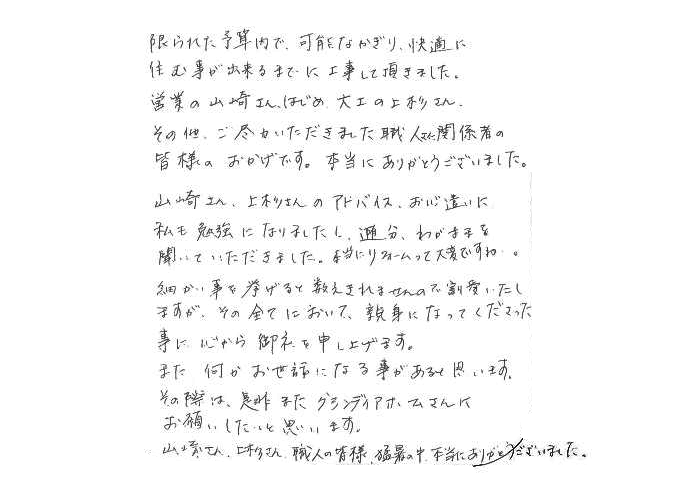 限られた予算内で、可能なかぎり、快適に
住む事が出来るまでに工事して頂きました。
営業の山崎さん、はじめ、大工の上杉さん、
その他、ご尽力いただきました職人さん関係者の
皆様の おかげです。本当にありがとうございました。
山崎さん、上杉さんのアドバイス、お心遣いに
私も勉強になりましたし、随分、わがままを
聞いていただきました。本当にリフォームって大変ですね…。
細かい事を挙げると数えきれませんので割愛いたし
ますが、その全てにおいて、親身になってくださった
事に心から御礼を申し上げます。
また何かお世話になる事があると思います。
その際は、是非またグランディアホームさんに
お願いしたいと思います。
山崎さん、上杉さん、職人の皆様、猛暑の中、本当にありがとうございました。